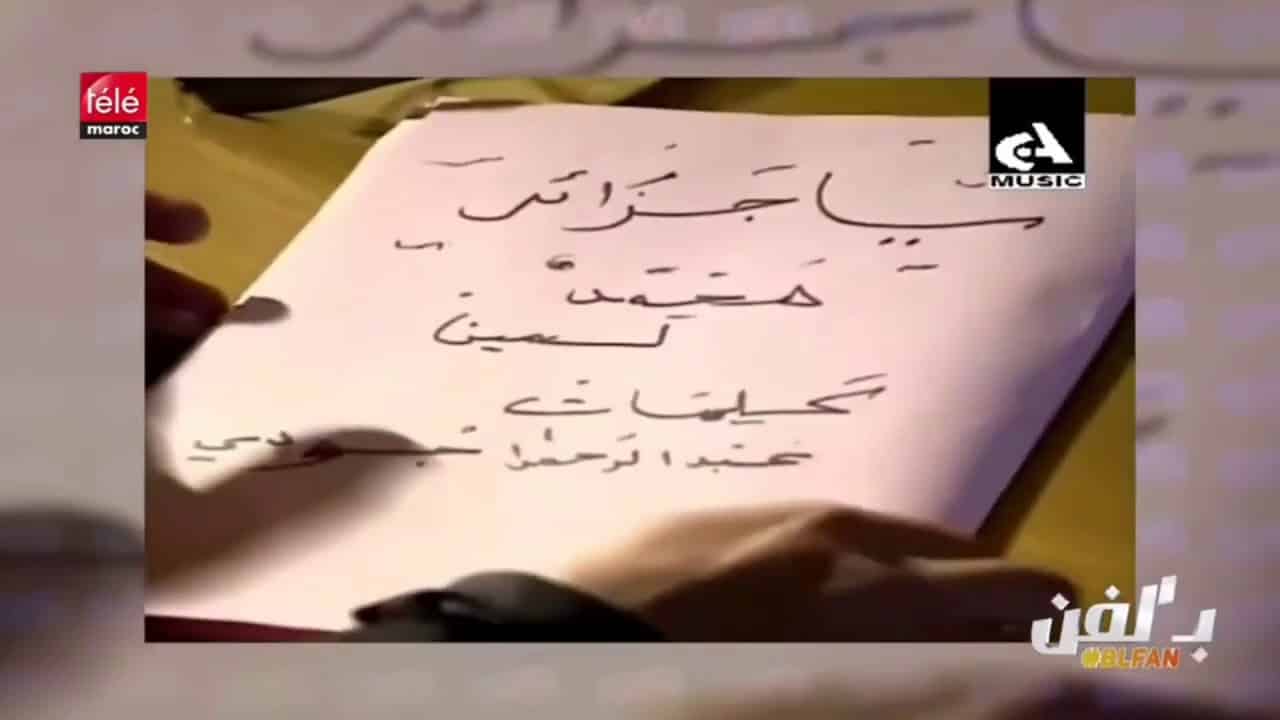 télé
maroc
MUSIC
يا جزائري
محمد
لمين
كلمات
عبد الرحمن
بـ لفن
#BLFAN